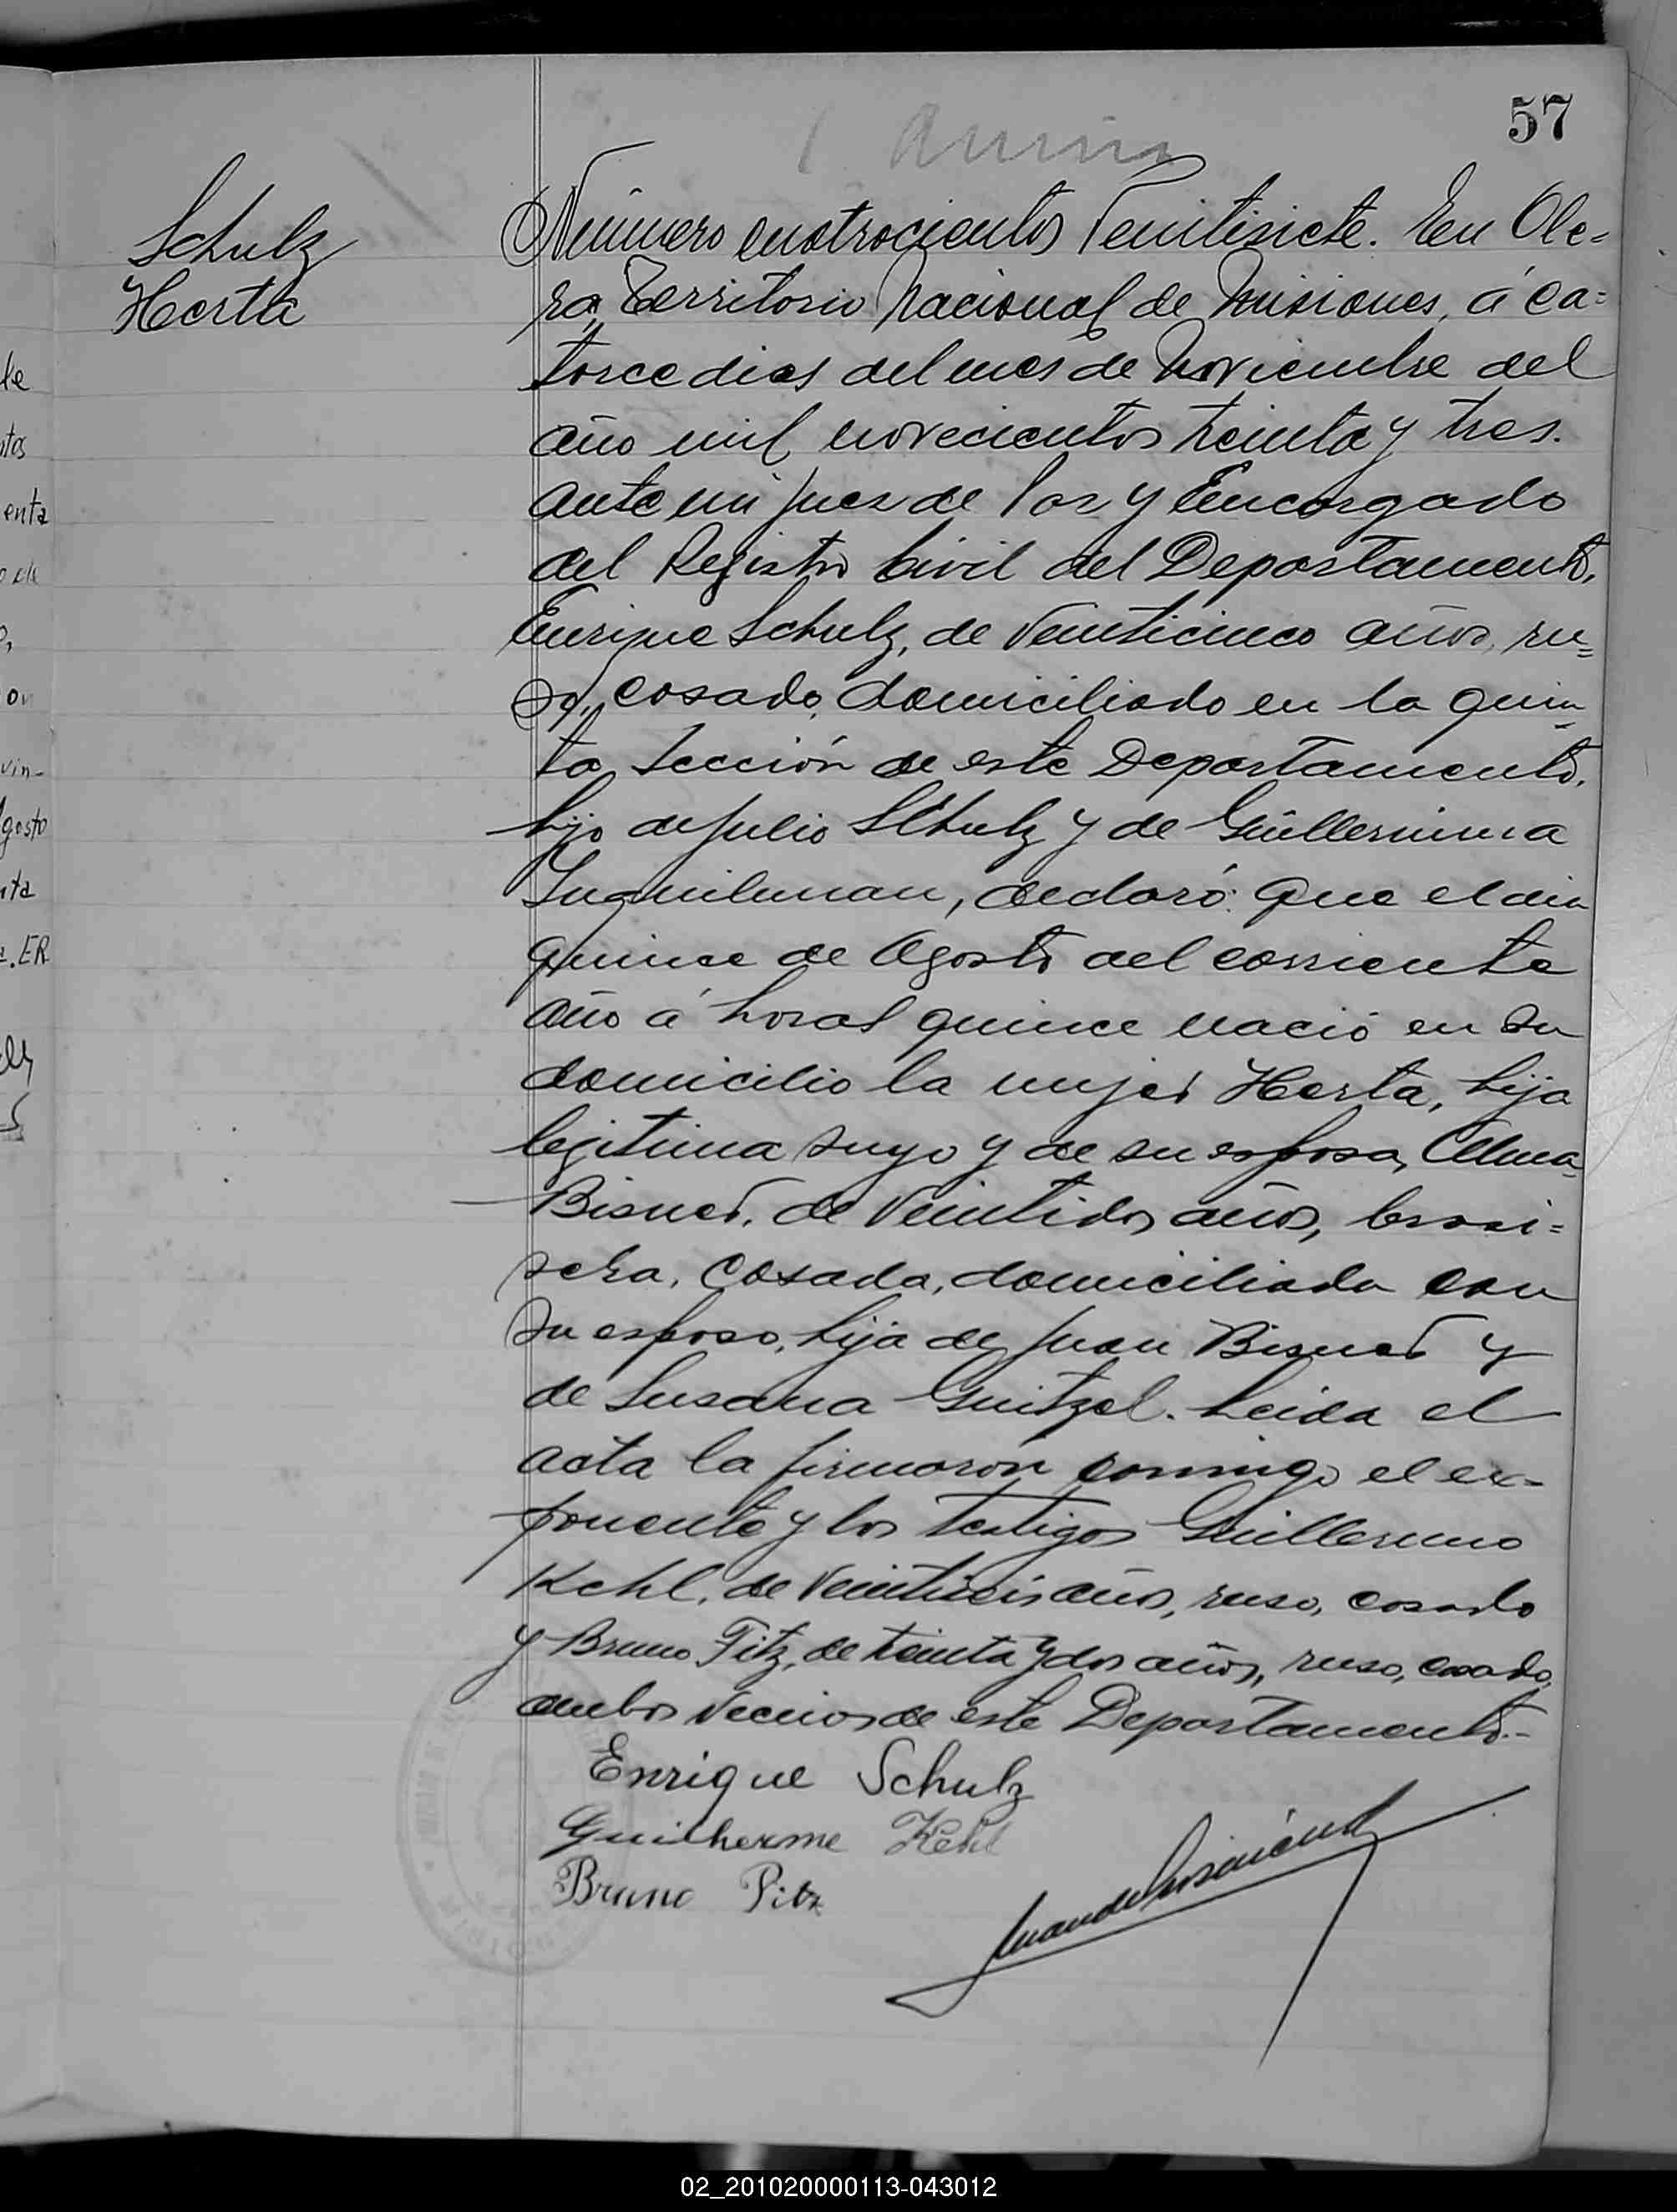 57
Schulz
Herta
Número cuatrocientos Veintisiete. En Ole=
ra, Territorio Nacional de Misiones, á ca=
torce dias del mes de Noviembre del
año mil novecientos treinta y tres.
ante mi Juez de Paz y Encargado
del Registro Civil del Departamento,
Enrique Schulz, de Veinticinco años, ru=
so, casado, domiciliado en la quin
ta Sección de este Departamento,
hijo de Julio Schulz y de Guillermina
declaró: Que el dia
quince de Agosto del corriente
año á horas quince nació en su
domicilio la mujer Herta, hija
legitima suya y de su esposa, Alma
Bisner, de Veintidos años, brasi=
lera, casada, domiciliada con
su esposo, hija de Juan Bisner y
de Susana Guitzel. Leida el
acta la firmaron conmigo el ex=
ponente y los testigos Guillermo
Kehl, de Veintiseis años, ruso, casado
y Bruno Fitz, de treinta y dos años, ruso, casado,
ambos vecinos de este Departamento.-
Enrique Schulz
Guilherme Kehl
Bruno Pitz
02_201020000113-043012